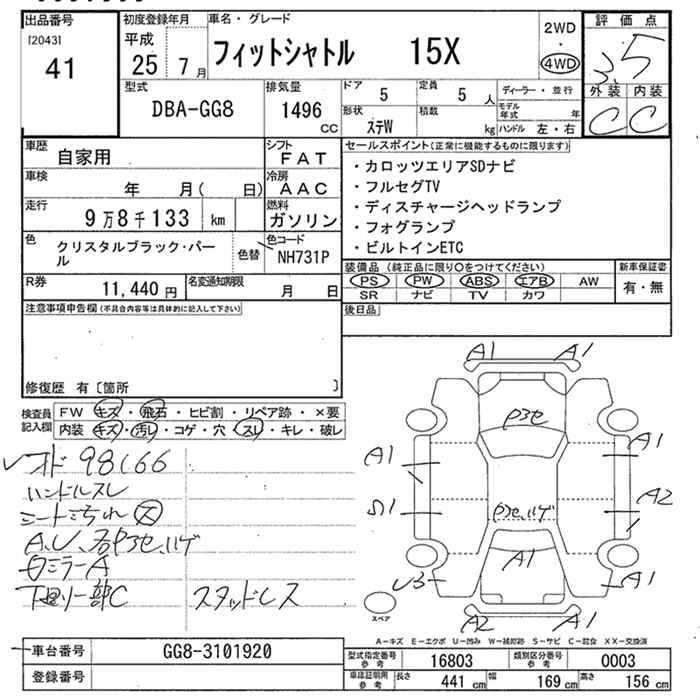 出品番号
[2043]
41
初度登録年月
平成
25 7月
車名・グレード
フィットシャトル 15X
2WD
・
4WD
評価点
3.5
外装 内装
C C
型式
DBA-GG8
排気量
1496
CC
ドア 5
定員 5 人
形状 ステW
積載 kg
ディーラー・並行
モデル年式 年
ハンドル 左・右
車歴
自家用
シフト
FAT
車検
年 月( 日)
冷房
AAC
走行
9万8千133 km
燃料
ガソリン
色
クリスタルブラック・パール
色替
色コード
NH731P
R券
11,440 円
名変通知期限
月 日
セールスポイント(正常に機能するものに限ります)
・カロッツエリアSDナビ
・フルセグTV
・ディスチャージヘッドランプ
・フォグランプ
・ビルトインETC
装備品 (純正品に限り○をつけてください)
PS PW ABS エアB AW
SR ナビ TV カワ
新車保証書
有・無
後日品
注意事項申告欄(不具合内容等は具体的に記入して下さい)
修復歴 有[箇所 ]
検査員記入欄
FW キズ・飛石・ヒビ割・リペア跡・×要
内装 キズ・汚レ・コゲ・穴・スレ・キレ・破レ
メド 98166
ハンドルスレ
シートよごれ 大
A.U、名Pヨセ、ハゲ
ミラーA
下回り一部C
スタッドレス
A1 A1
Pヨセ
A1 A1
S1 A2
Pヨセ、ハゲ
A1
U3 A1
A2 A1
スペア
A-キズ E-エクボ U-凹み W-補修跡 S-サビ C-腐食 XX-交換済
車台番号
GG8-3101920
登録番号
型式指定番号 参考 16803
類別区分番号 参考 0003
車庫証明用 参考 長さ 441 cm 幅 169 cm 高さ 156 cm